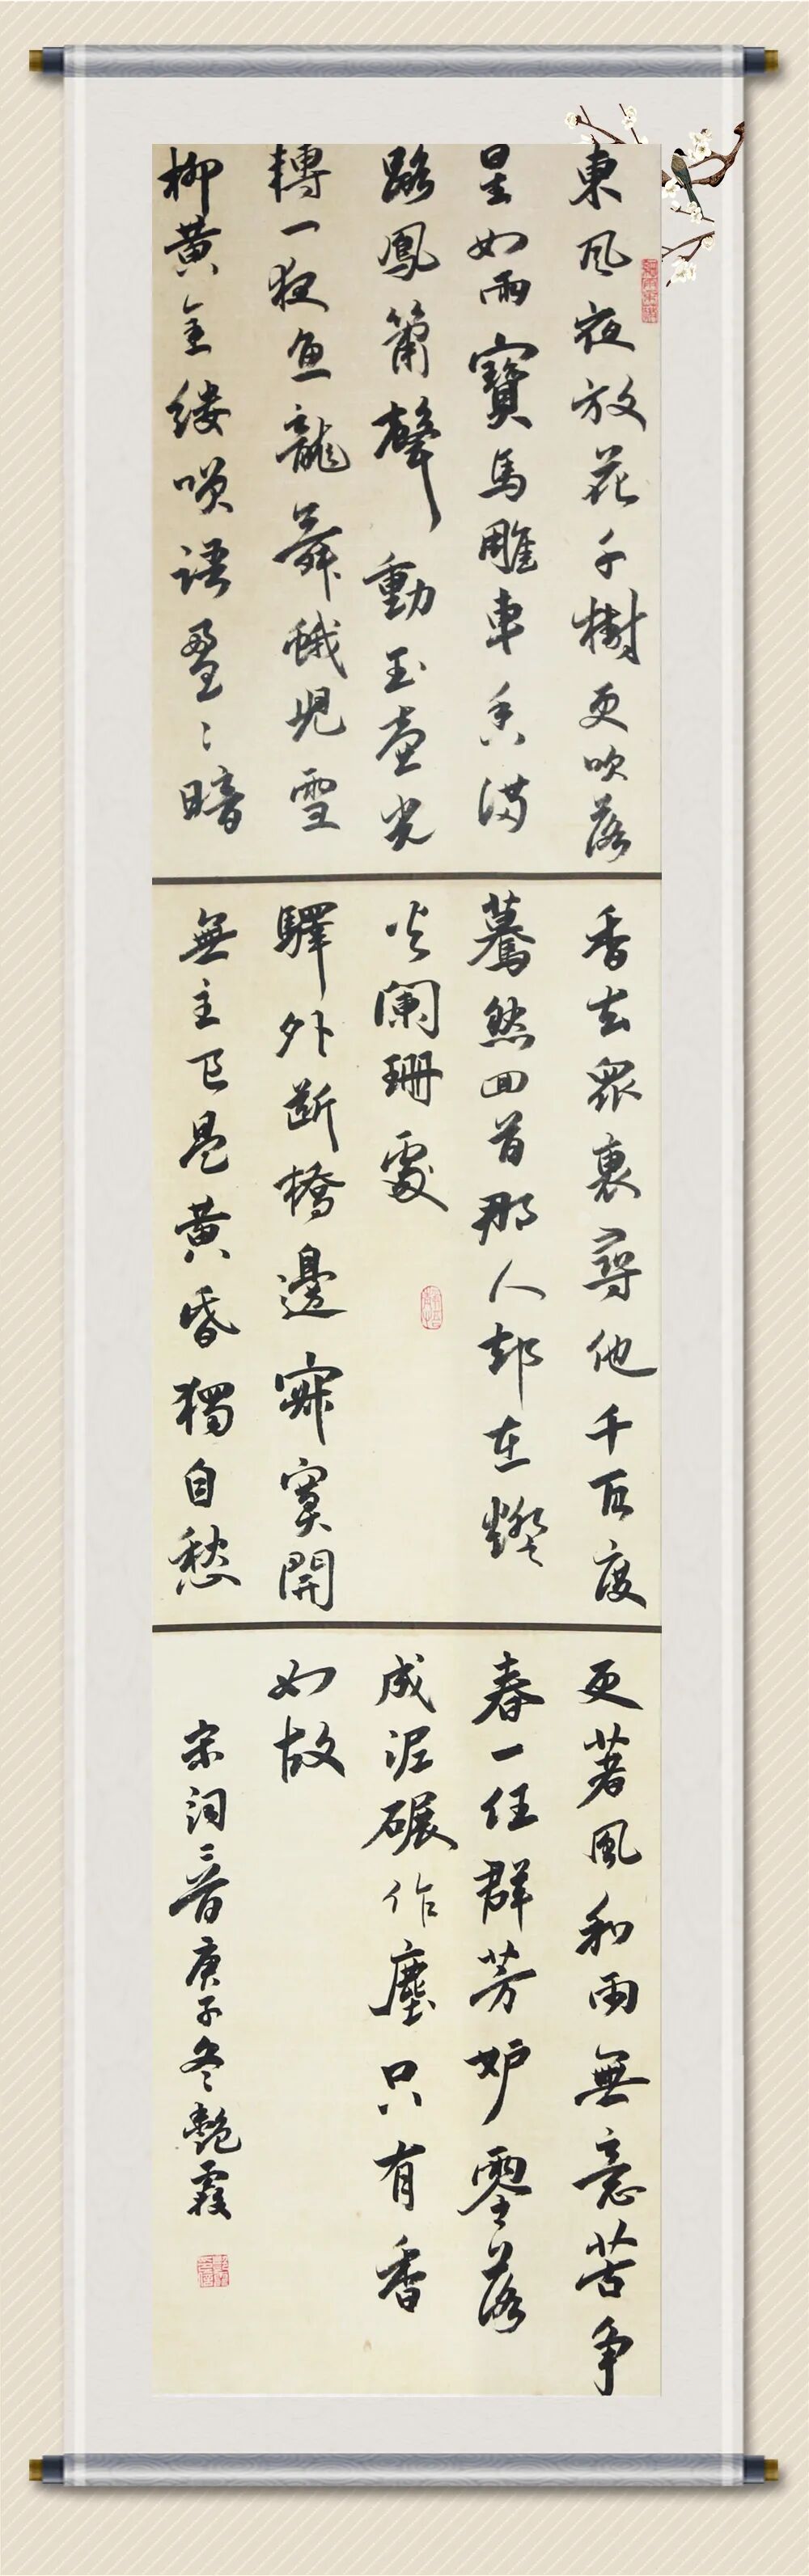 東风夜放花千樹更吹落
星如雨寶馬雕車香滿
路鳳簫聲動玉壺光
轉一夜魚龍舞蛾兒雪
柳黃金縷笑語盈〻暗
香去眾裏尋他千百度
驀然回首那人却在燈
火闌珊處
驛外斷橋邊寂寞開
無主已是黃昏獨自愁
更著風和雨無意苦爭
春一任群芳妒零落
成泥碾作塵只有香
如故
宋詞二首庚子冬艷霞